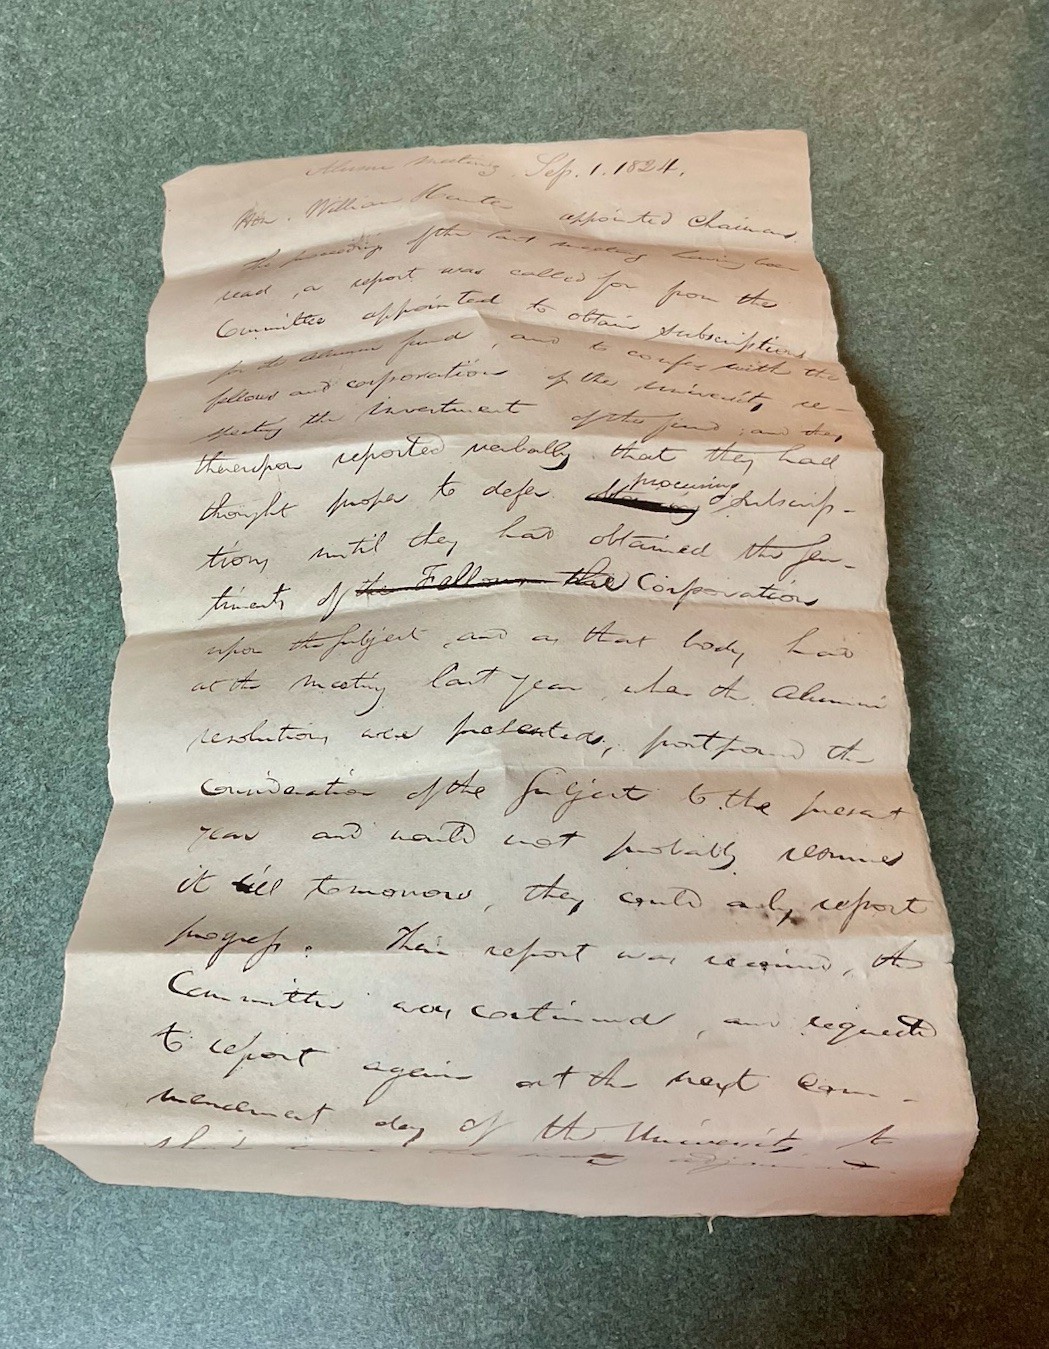 Alumni meeting Sep. 1. 1824.
Hon. William Hunter appointed Chairman.
the proceedings of the last meeting having been
read, a report was called for from the
Committee appointed to obtain subscriptions
for the alumni fund, and to confer with the
fellows and corporation of the University, re-
specting the investment of the fund; and they
thereupon reported verbally that they had
procuring
thought proper to defer subscrip-
tions until they had obtained the sen-
timents of the Fellows the Corporation
upon the subject, and as that body had
at the meeting last year, when the Alumni
resolutions were presented, postponed the
consideration of the subject to the present
year and would not probably resume
it till tomorrow, they could only report
progress. Their report was received, the
Committee was continued, and requested
to report again at the next com-
mencement day of the University to